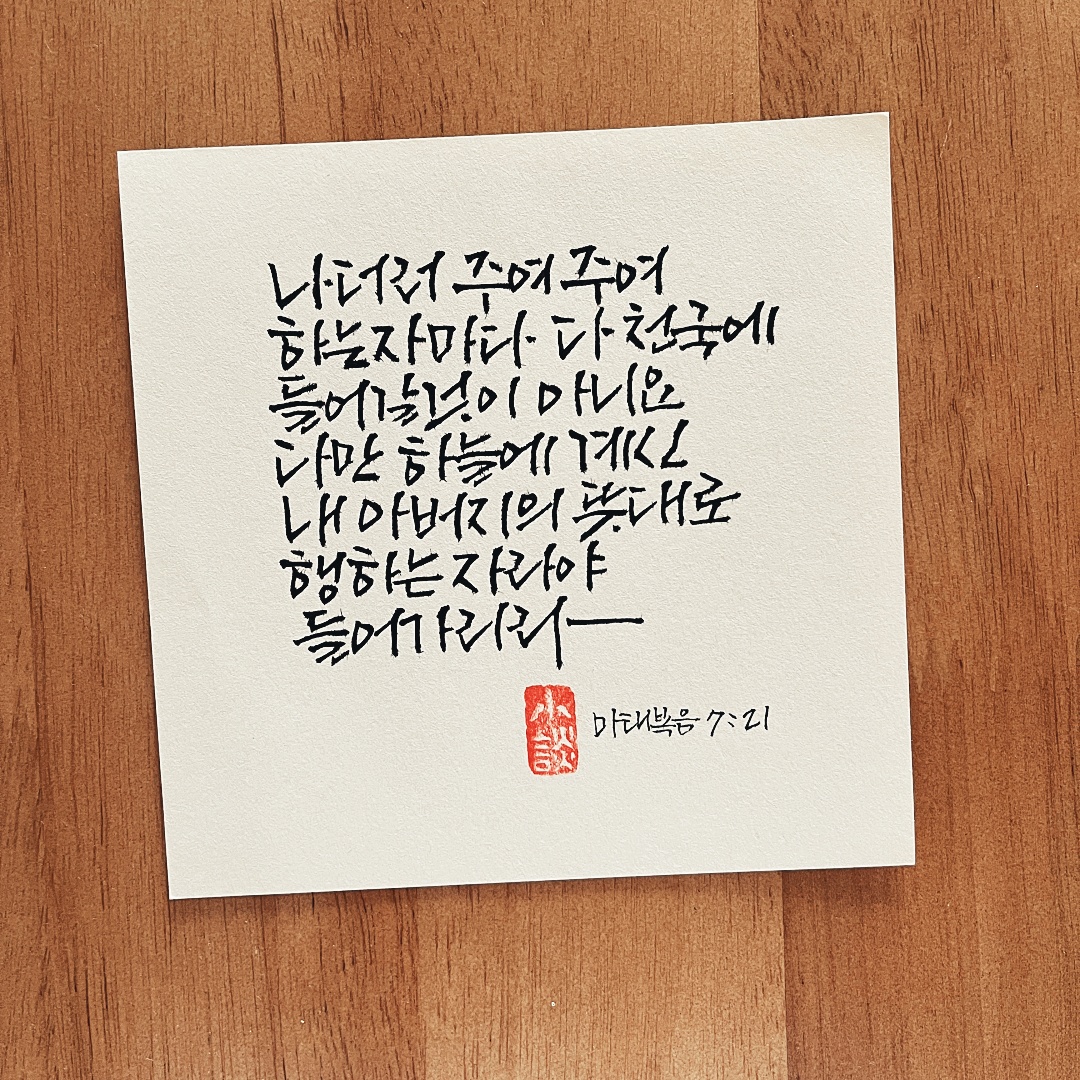 나더러 주여 주여
하는 자마다 다 천국에
들어갈 것이 아니요
다만 하늘에 계신
내 아버지의 뜻대로
행하는 자라야
들어가리라
小談
마태복음 7:21